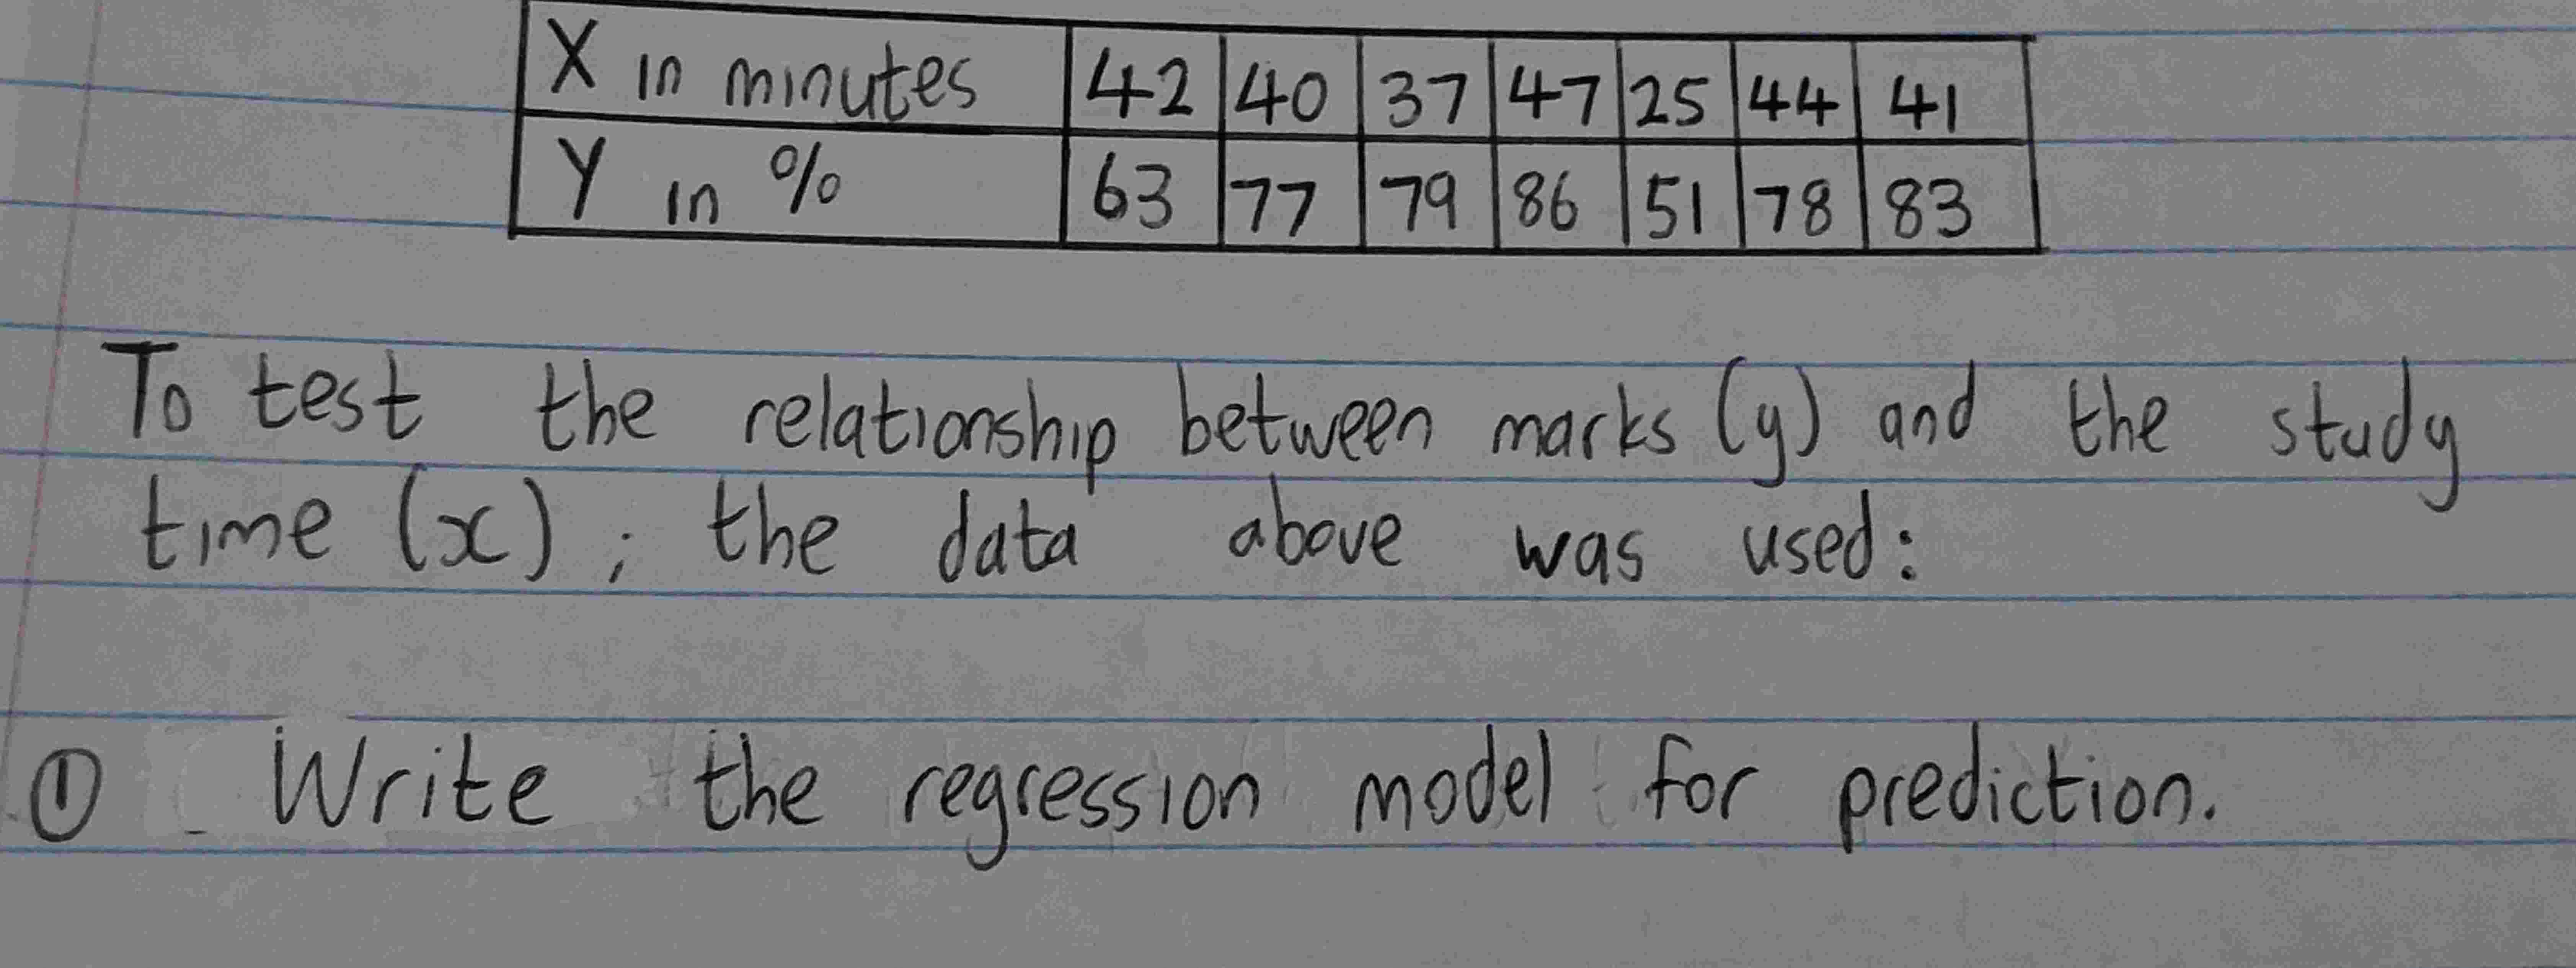 X in minutes 42 40 37 47 25 44 41
Y in % 63 77 79 86 51 78 83
To test the relationship between marks (y) and the study
time (x) ; the data above was used:
① Write the regression model for prediction.